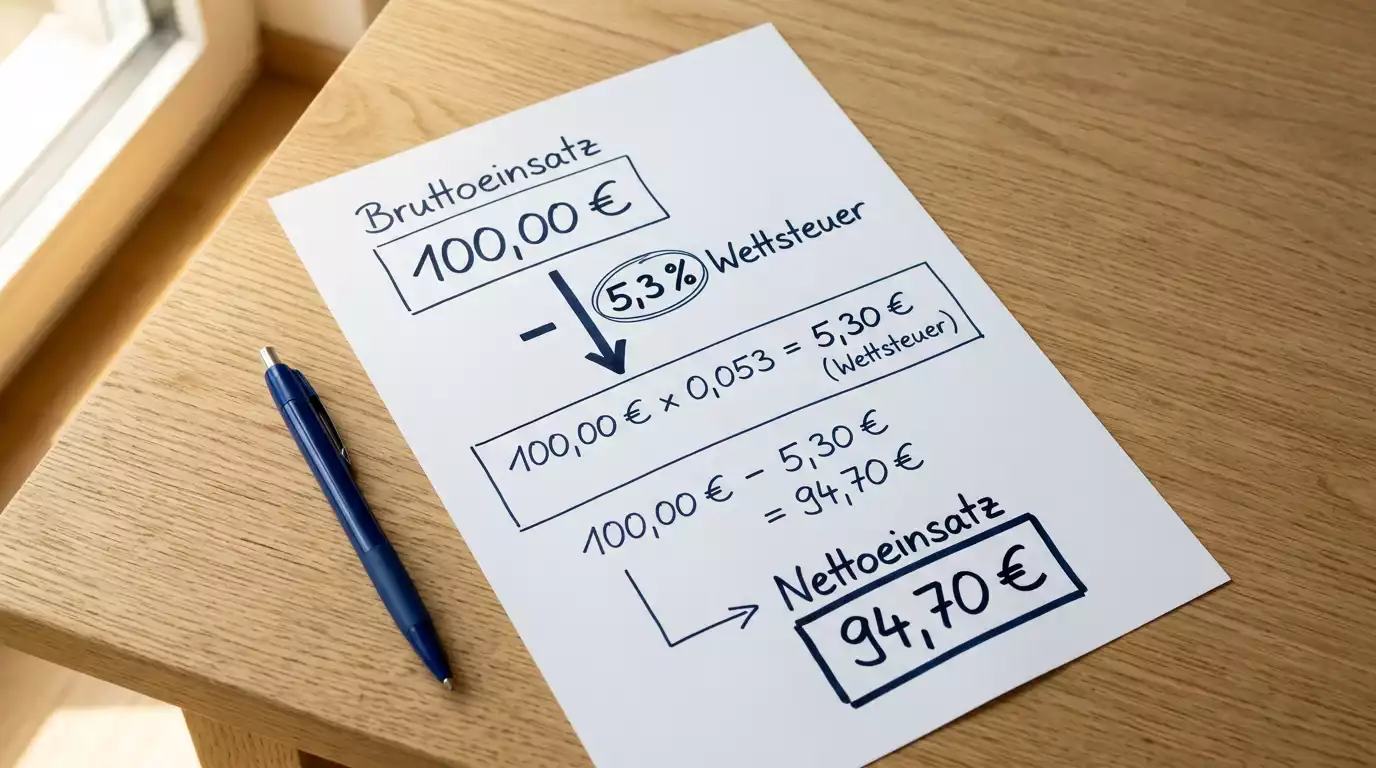 Bruttoeinsatz
100,00 €
– 5,3 % Wettsteuer
100,00 € × 0,053 = 5,30 €
(Wettsteuer)
100,00 € – 5,30 €
= 94,70 €
Nettoeinsatz
94,70 €